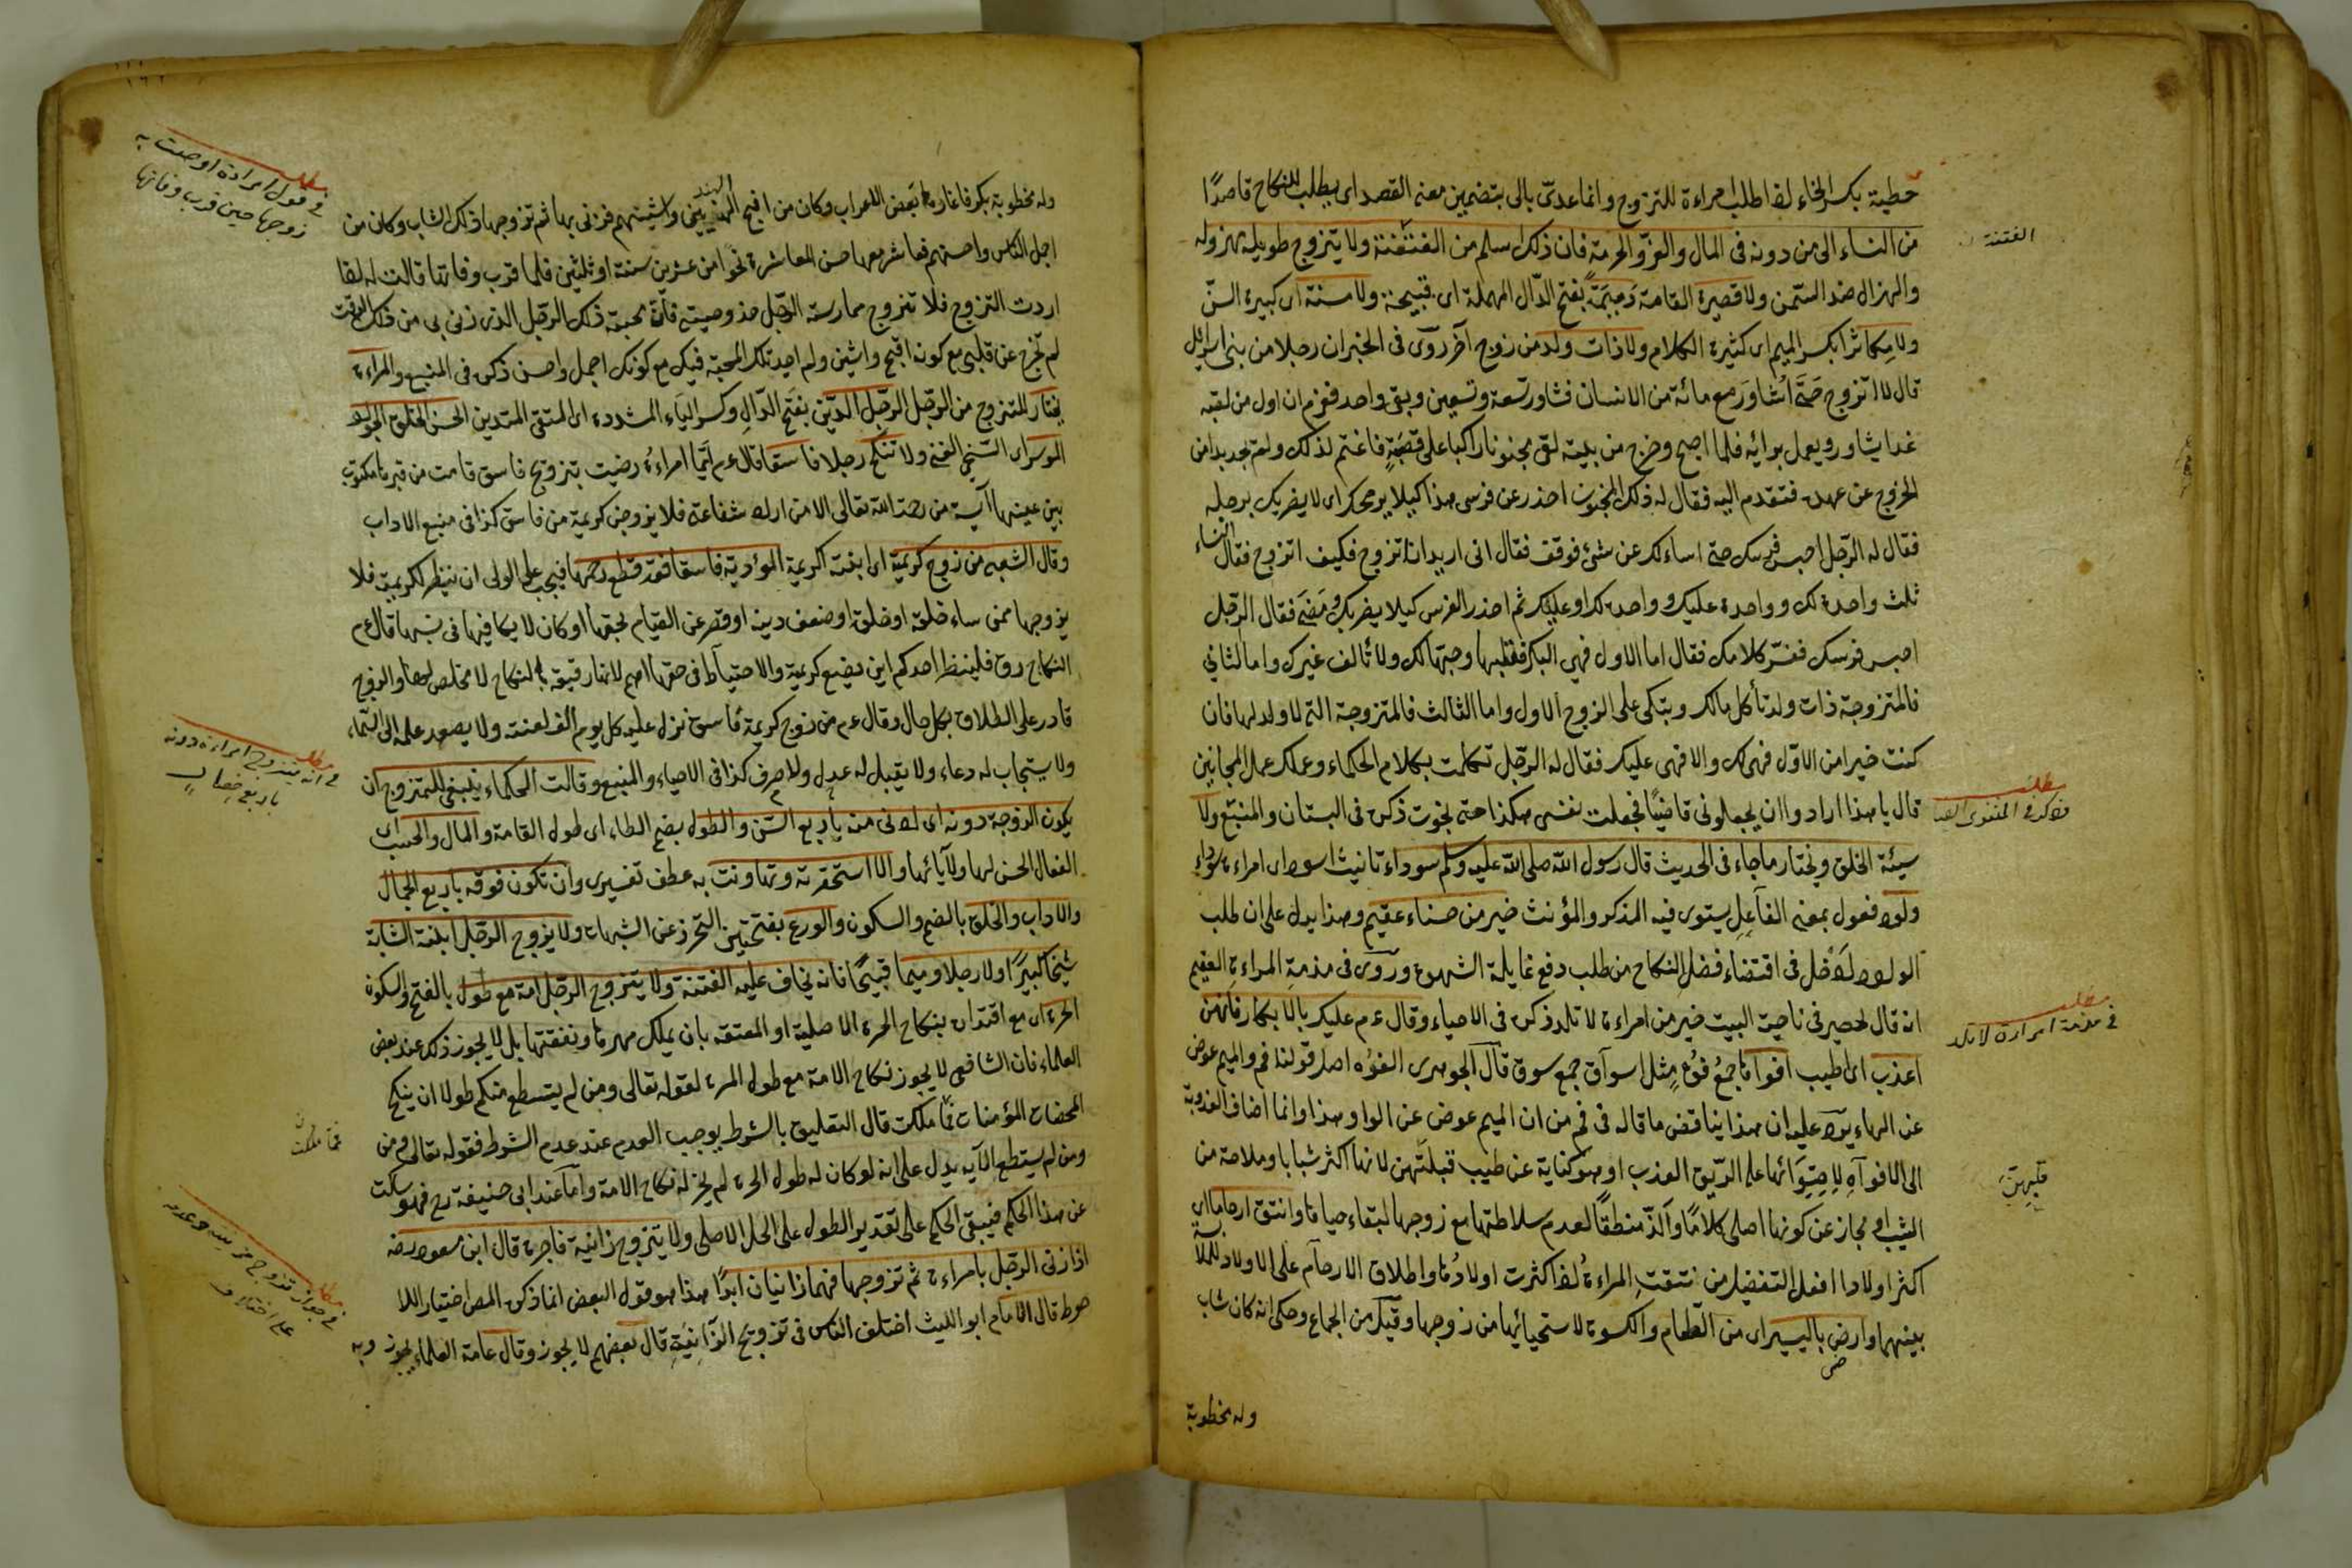 خطبة بكسر الخاء لقا طلب امراءة للتزوج وانما عدى بالى بتضمين معنى القصد اى يطلب للنكاح قاصدًا
من النساء الى من دونه فى المال والعز والحرمة فان ذلك اسلم من الفتنة ولا يتزوج طويلة مهزولة
والهزال ضد السمن ولا قصيرة القامة دميمة بفتح الدال المهملة اى قبيحة ولا مسنة اى كبيرة السن
ولا مكثارا بكسر الميم اى كثيرة الكلام ولا ذات ولد من زوج آخر روى فى الخبر ان رجلا من بنى اسرائيل
قال لا اتزوج حتى اشاور مع مائة من الانسان فشاور تسعة وتسعين وبقى واحد فعزم ان اول من لقيه
غدا يشاوره ويعمل برائه فلما اصبح وخرج من بيته لقى مجنونا راكبا على قصبة فاغتم لذلك ولم يجد بدا من
الخروج عن عهده فتقدم اليه فقال له ذلك المجنون احذر عن فرسى هذا كيلا يرمحك اى لا يضربك برجله
فقال له الرجل احبس فرسك حتى اساءلك عن شئ فوقف فقال انى اريد ان اتزوج فكيف اتزوج فقال النساء
ثلث واحدة لك وواحدة عليك وواحدة لك او عليك ثم احذر الفرس كيلا يضربك ومضى فقال الرجل
احبس فرسك ففسر كلامك فقال اما الاول فهى البكر فقلبها وحبها لك ولا تألف غيرك واما الثانى
فالمتزوجة ذات ولد تأكل مالك وتبكى على الزوج الاول واما الثالث فالمتزوجة التى لا ولد لها فان
كنت خيرا من الاول فهى لك والا فهى عليك فقال له الرجل تكلمت بكلام الحكماء وعملك عمل المجانين
قال يا هذا ارادوا ان يجعلونى قاضيًا فجعلت نفسى هكذا حتى نجوت ذكره فى البستان والمنبع ولا
سيئة الخلق ويختار ما جاء فى الحديث قال رسول الله صلى الله عليه وسلم سوداء تانيث اسود اى امراءة سوداء
ولود فعول بمعنى الفاعل يستوى فيه المذكر والمؤنث خير من حسناء عقيم وهذا يدل على ان طلب
الولد ادخل فى اقتضاء فضل النكاح من طلب دفع غايلة الشهوة وروى فى مذمة المراءة العقيم
انه قال لحصير فى ناحية البيت خير من امراءة لا تلد ذكره فى الاحياء وقال ع م عليكم بالابكار فانهن
اعذب اى اطيب افواها جمع فوه مثل اسواق جمع سوق قال الجوهرى الفوه اصل قولنا فم والميم عوض
عن الهاء يرد عليه ان هذا يناقض ما قاله فى فم من ان الميم عوض عن الواو وهذا وانما اضاف العذوبة
الى الافواه لاحتوائها على الريق العذب او هو كناية عن طيب قبلتهن لانها اكثر شبابا وملاحة من
الثيب او مجاز عن كونها احلى كلامًا وألذ منطقًا لعدم سلاطتها مع زوجها لبقاء حياءها وانتق ارحاما اى
اكثر اولادا افعل التفضيل من نتقت المراءة لقا كثرت اولادها واطلاق الارحام على الاولاد للملابسة
بينهما وارضى باليسير اى من الطعام والكسوة لاستحيائها من زوجها وقيل من الجماع وحكى انه كان شاب
وله مخطوبة
الفتنة
مطلب
مطلب
فى مذمة امراءة لا تلد
قبلتهن
وله مخطوبة بكر فاغارها بعض الاعراب وكان من اقبح الهنديين واشينهم فزنى بها ثم تزوجها ذلك الشاب وكان من
اجمل الناس واحسنهم فعاشر معها حسن المعاشرة نحوا من عشرين سنة او ثلثين فلما قرب وفاتها قالت له لقا
اردت التزوج فلا تتزوج ممارسة الرجل خذ وصيتى فان محبة ذلك الرجل الذى زنى بى من ذلك الوقت
لم تخرج عن قلبى مع كونه اقبح واشين ولم اجد تلك المحبة فيك مع كونك اجمل واحسن ذكره فى المنبع والمراءة
يختار للتزوج من الرجل الرجل الدين بفتح الدال وكسر الياء المشددة اى المتقى المتدين الحسن الخلق الجواد
الموسر اى السخى الغنى ولا تنكح رجلا فاسقا قال ع م ايما امراءة رضيت بتزويج فاسق قامت من قبرها مكتوب
بين عينيها آيسة من رحمة الله تعالى الا من اراد شفاعتى فلا يزوجن كريمة من فاسق كذا فى منبع الاداب
وقال الشعبى من زوج كريمته اى ابنته الكريمة المؤدبة فاسقا فقد قطع رحمها فيجب على الولى ان ينظر لكريمته فلا
يزوجها ممن ساء خلقه او خلقه او ضعف دينه او قصر عن القيام بحقها او كان لا يكافيها فى نسبها قال ع م
النكاح رق فلينظر احدكم اين يضع كريمته والاحتياط فى حقها اهم لانها رقيقة بالنكاح لا مخلص لها والزوج
قادر على الطلاق بكل حال وقال ع م من زوج كريمة فاسق نزل عليه كل يوم الف لعنة ولا يصعد عمله الى السماء
ولا يستجاب له دعاء ولا يقبل له عدل ولا صرف كذا فى الاحياء والمنبع وقالت الحكماء ينبغى للمتزوج ان
يكون الزوجة دونه اى ادنى منه باربع السن والطول بضم الطاء اى طول القامة والمال والحسب اى
الفعال الحسن لها ولآبائها والا استحقرته وتهاونت به عطف تفسيرى وان تكون فوقه باربع الجمال
والاداب والخلق بالضم والسكون والورع بفتحتين التحرز عن الشبهات ولا يزوج الرجل ابنته الشابة
شيخا كبيرًا ولا رجلا دميما قبيحًا فانه يخاف عليه الفتنة ولا يتزوج الرجل امة مع طول بالفتح والسكون
الحرة اى مع اقتداره بنكاح الحرة الاصلية او المعتقة بان يملك مهرها ونفقتها بل لا يجوز ذلك عند بعض
العلماء فان الشافعى لا يجوز نكاح الامة مع طول الحرة لقوله تعالى ومن لم يستطع منكم طولا ان ينكح
المحصنات المؤمنات فما ملكت قال التعليق بالشرط يوجب العدم عند عدم الشرط فقوله تعالى ومن
ومن لم يستطع الآية يدل على انه لو كان له طول الحرة لم يجز له نكاح الامة واما عند ابى حنيفة رح فهو ساكت
عن هذا الحكم فيبقى الحكم على تقدير الطول على الحل الاصلى ولا يتزوج زانية فاجرة قال ابن مسعود رضه
اذا زنى الرجل بامراءة ثم تزوجها فهما زانيان ابدًا هذا هو قول البعض انما ذكره المص اختيارا للا
حوط قال الامام ابو الليث اختلف الناس فى تزويج الزانية قال بعضهم لا يجوز وقال عامة العلماء يجوز وبه
مطلب
فى قول امراءة اوصت
زوجها حين قرب وفاتها
مطلب
فى انه يتزوج امراءة دونه
باربع خصال
فما ملكت
مطلب